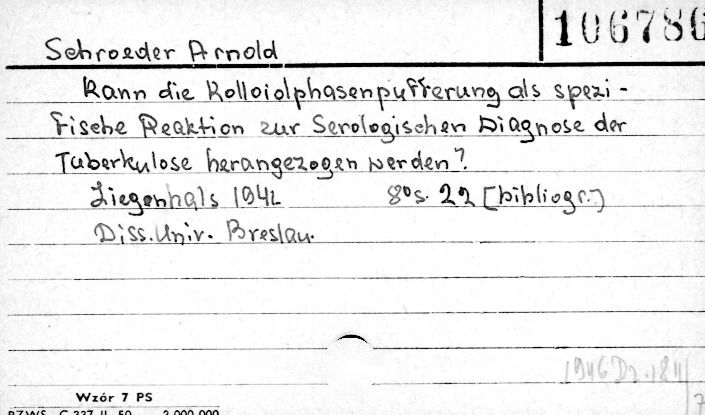 106786
Schroeder Arnold
Kann die Kolloidphasenpufferung als spezi-
fische Reaktion zur Serologischen Diagnose der
Tuberkulose herangezogen werden?
Ziegenhals 1942 8° s. 22 [bibliogr.]
Diss. Univ. Breslau.
1946 Dz. 184
Wzór 7 PS